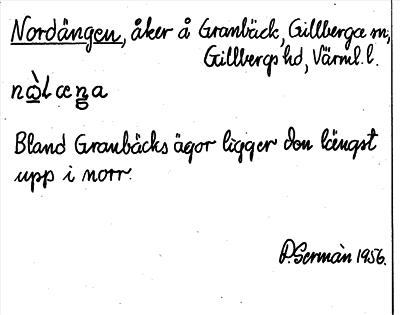 Nordängen, åker å Granbäck, Gillberga sn,
Gillbergs hd, Värml. l.
nὼlæŋa
Bland Granbäcks ägor ligger den längst
upp i norr.
P. Sermàn 1956.